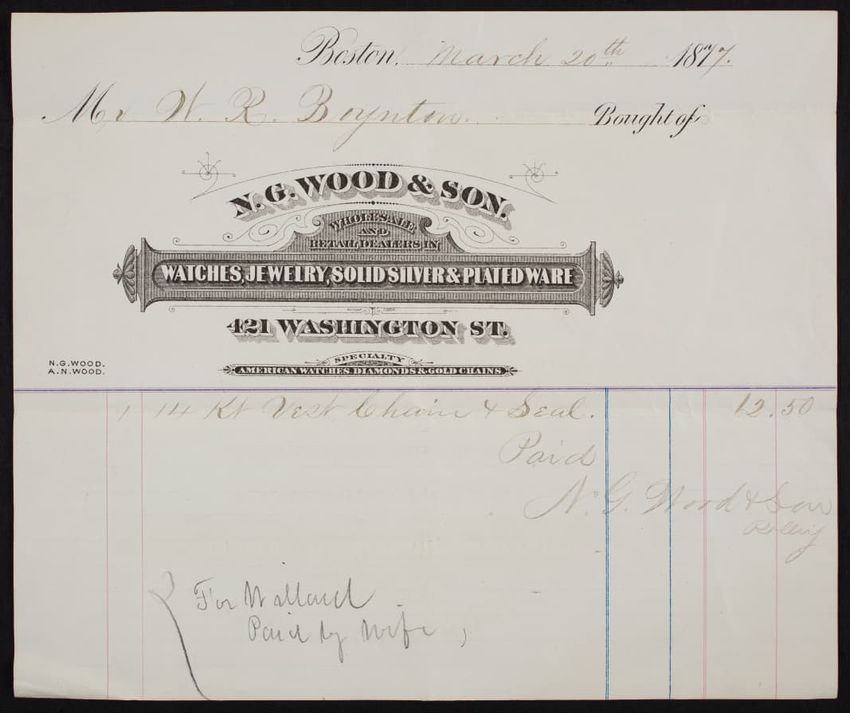 Boston, March 20th 1877.
Mr W. R. Boynton. Bought of
N. G. WOOD & SON.
WHOLESALE
AND
RETAIL DEALERS IN
WATCHES, JEWELRY, SOLID SILVER & PLATED WARE
421 WASHINGTON ST.
SPECIALTY
AMERICAN WATCHES DIAMONDS & GOLD CHAINS
N.G. WOOD.
A.N. WOOD.
1 14 Kt Vest Chain & Seal. 12.50
Paid
N. G. Wood & Son
For Willard
Paid by Wife,